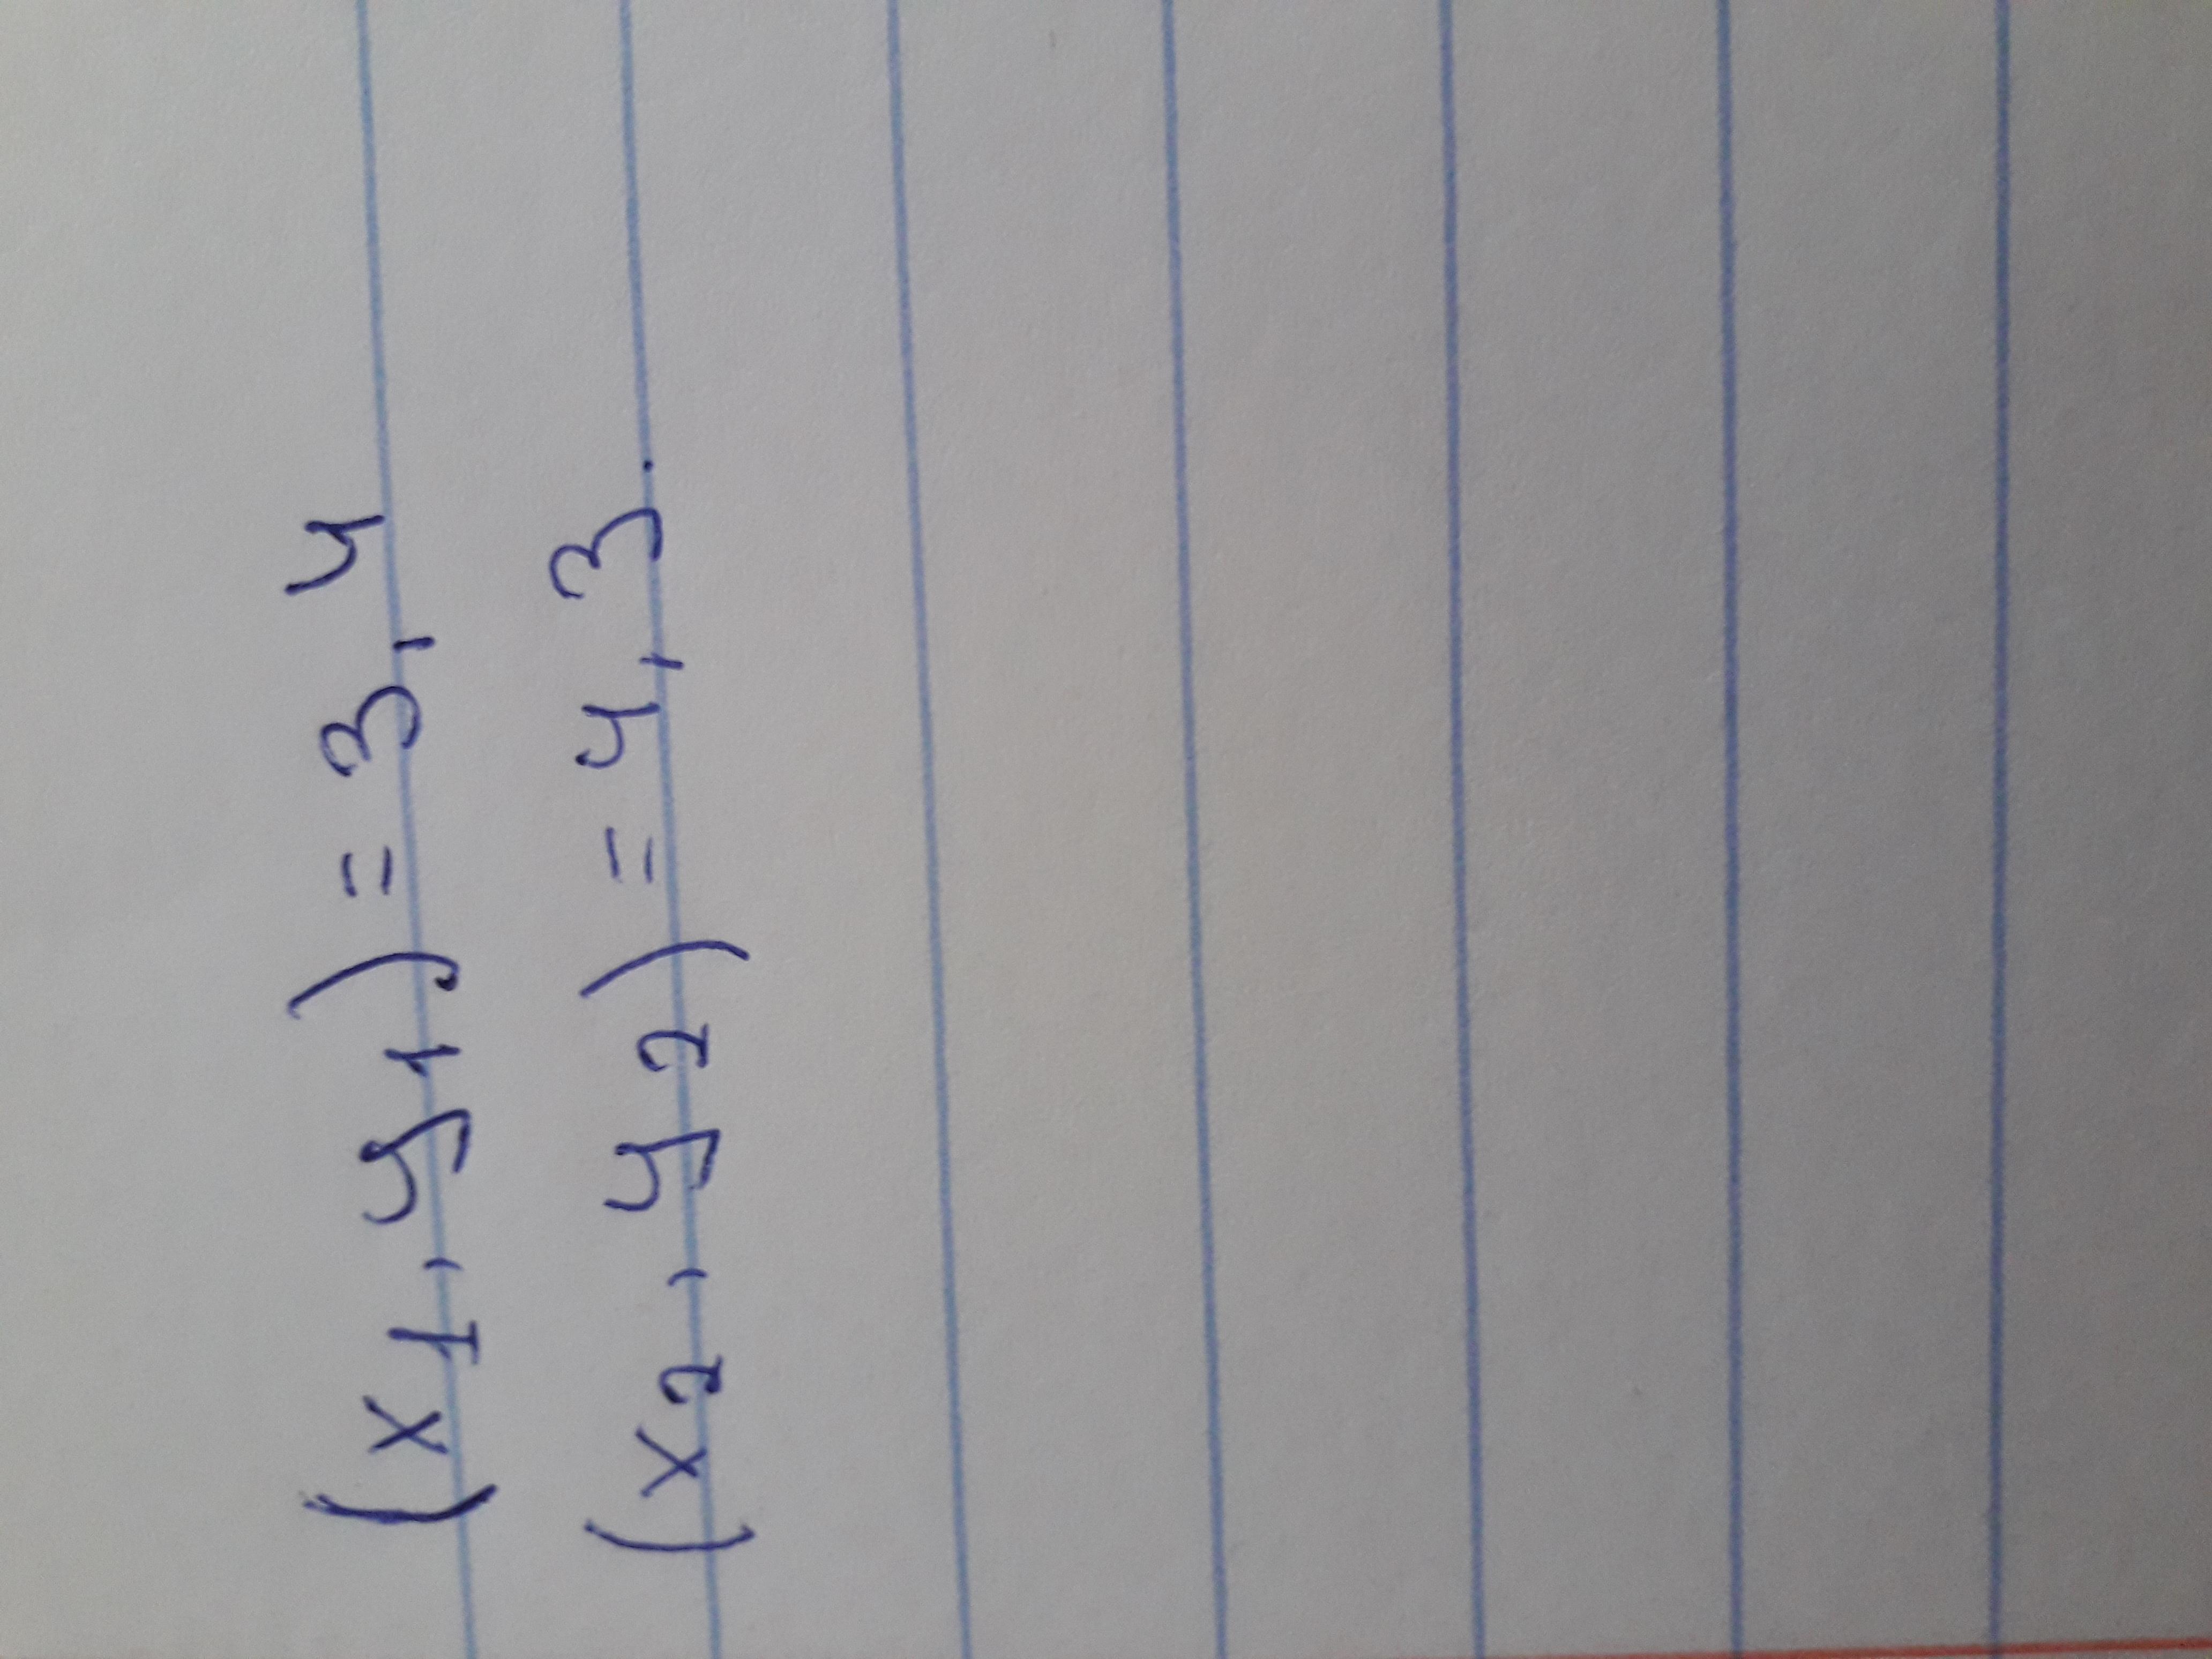 (x1, y1) = 3, 4
(x2, y2) = 4, 3.